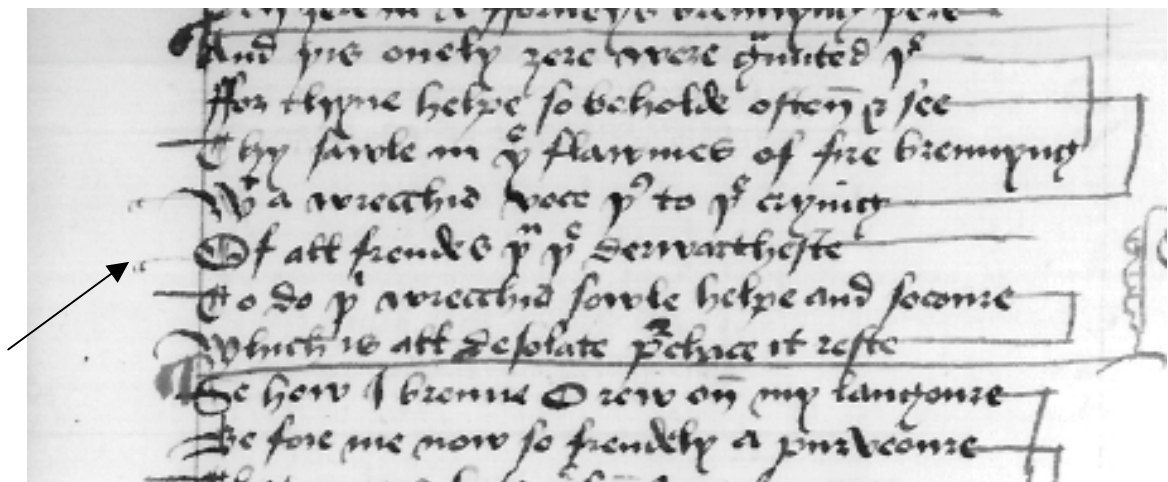 in a fforneys brennyng þere
And þis onely ȝere were gᵃunted þᵉ
ffor thyne helpe so beholde often & see
Thy sawle in þᵉ flawmes of fire brennyng
Wᵗ a wrecchid voce þ⁹ to þᵉ crying
Of all frendes þᵘ þᵉ derwartheste
To do þⁱ wrecchid sowle helpe and socoure
Which is all desolate p²chace it reste
Se how I brenne O rew on my langoure
Be fore me now so frendely a purveoure